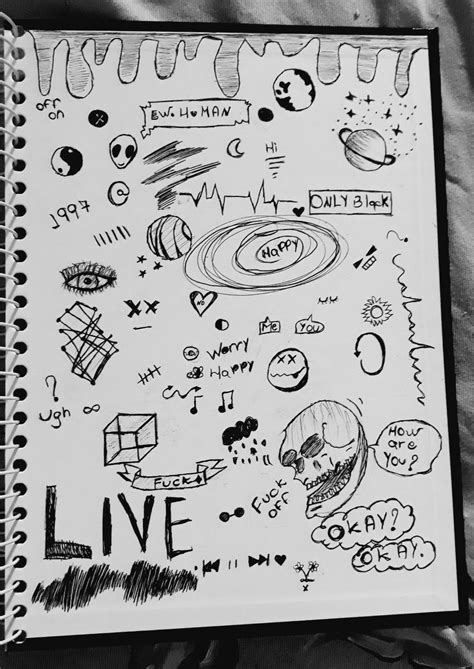 off
on
EW. HUMAN
Hi
1997
ONLY Black
HAPPY
NO
Me
You
Worry
Happy
?
?
##
Ugh ∞
HOW
ARE
YOU?
FUCK
FUCK
OFF
LIVE
OKAY?
OKAY.